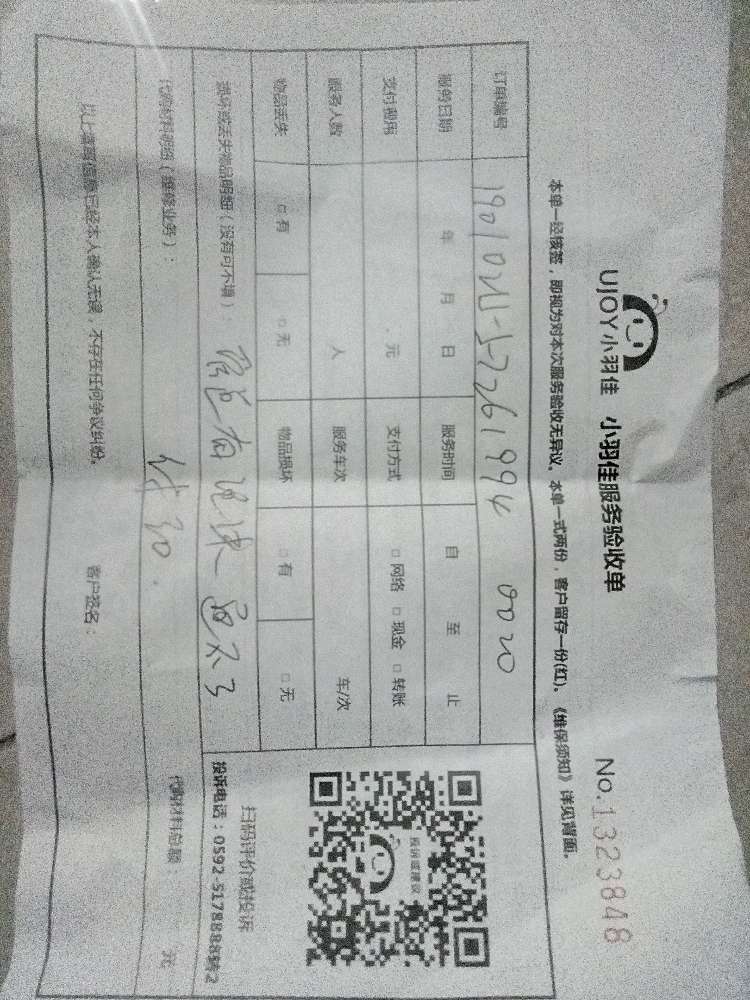 UJOY小羽佳 小羽佳服务验收单
No.1323848
本单一经核签，即视为对本次服务验收无异议。本单一式两份，客户留存一份(红)。《维保须知》详见背面。
订单编号
服务日期 年 月 日 服务时间 自 至 止
支付费用 元 支付方式 □网络 □现金 □转账
服务人数 人 服务车次 车/次
物品丢失 □有 □无 物品损坏 □有 □无
投诉或建议
扫码评价或投诉
投诉电话：0592-5178888转2
损坏或丢失物品明细（没有可不填）
代购材料明细（维修业务）：
代购材料总额 元
以上填写信息已经本人确认无误，不存在任何争议纠纷。
客户签名：